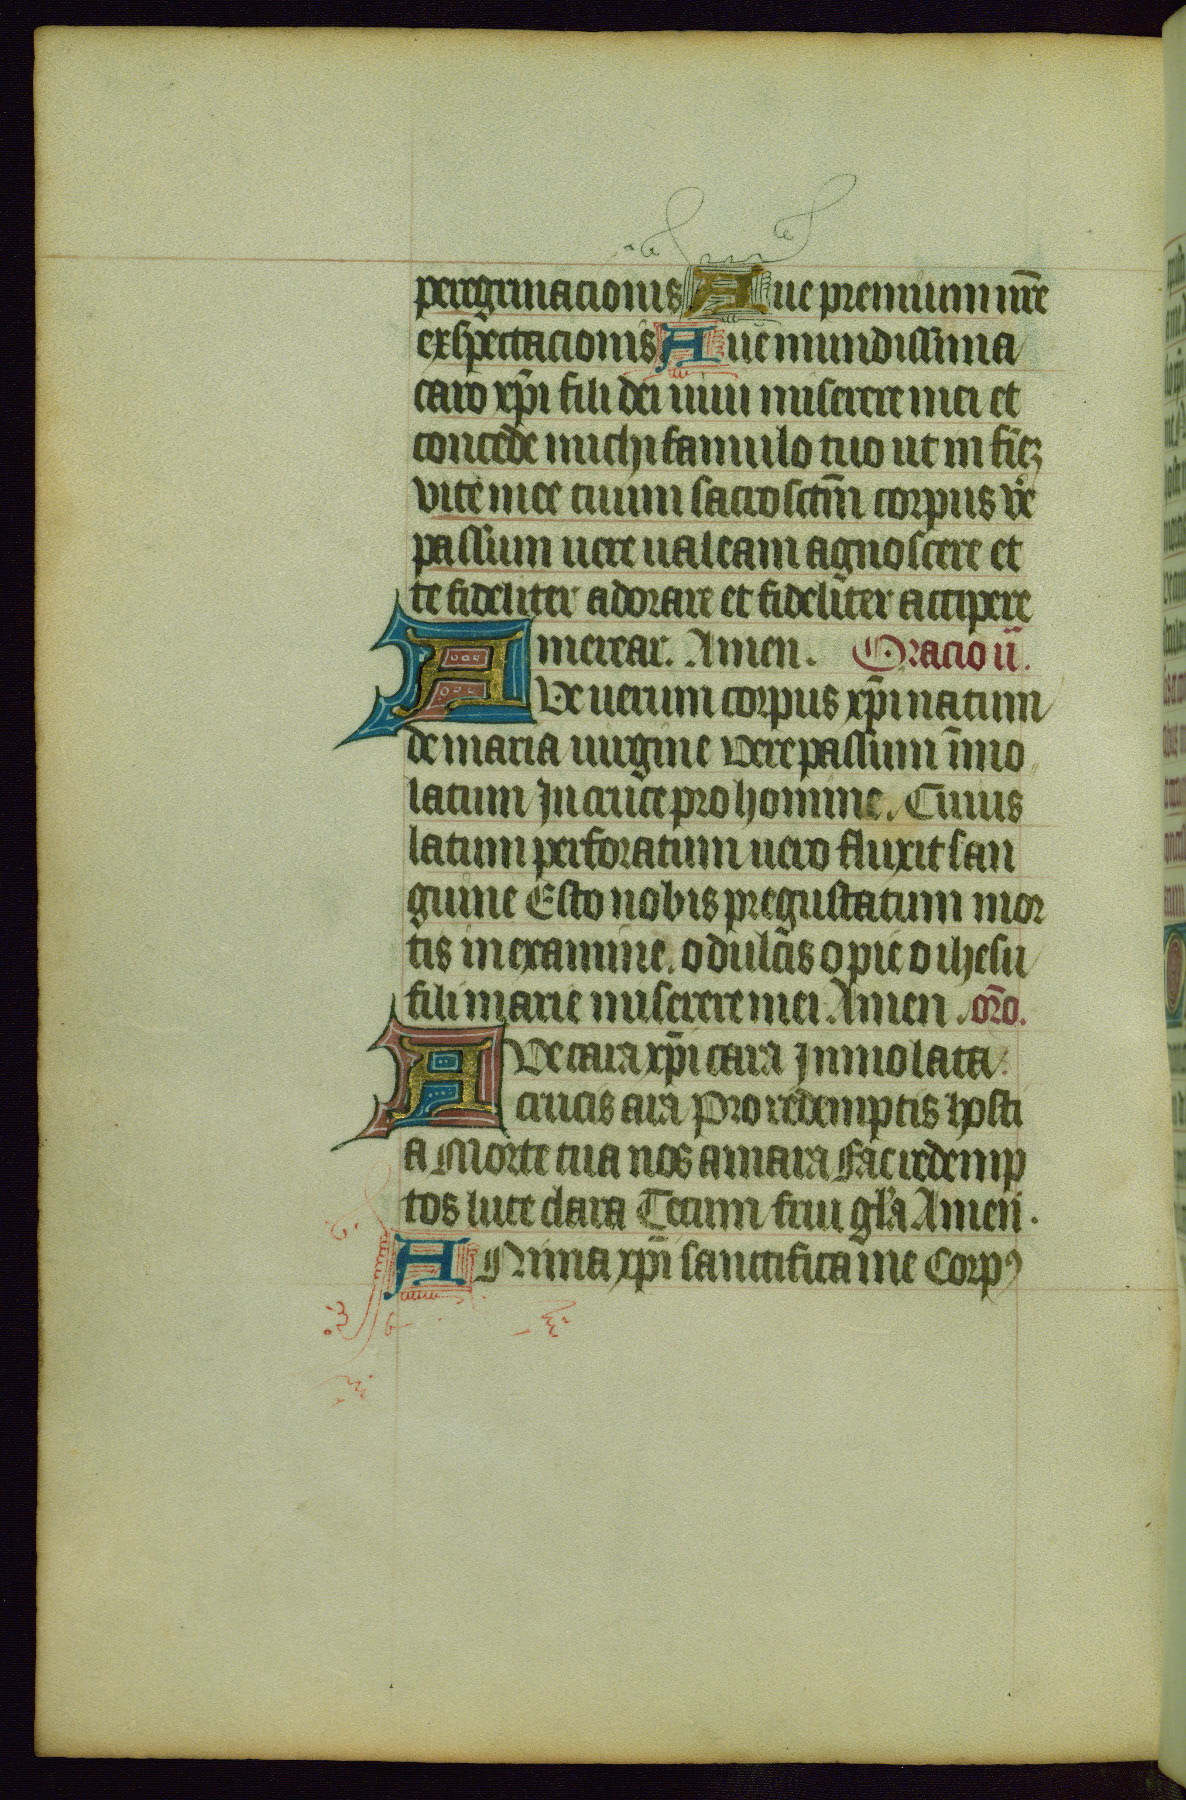 peregrinacionis Aue premium nr̄e
exspectacionis Aue mundissima
caro xp̄i fili dei uiui miserere mei et
concede michi famulo tuo ut in fiēz
vite mee tuum sacrosctm̄ corpus ve
passum uere ualeam agnoscere et
te fideliter adorare et fidelit̄er accipere
merear. Amen. Oracio ii.
AVe uerum corpus xp̄i natum
de maria uirgine Vere passum īmo
latum In cruce pro homine. Cuius
latum perforatum uero fluxit san
guine Esto nobis pregustatum mor
tis in examine. o dulcīs o pie o ihesu
fili marie miserere mei Amen. or̄o.
AVe cara xp̄i cara Inmolata
crucis ara Pro redemptis hosti
a Morte tua nos amara Fac redemp
tos luce clara Tecum frui gl̄a Amen.
ANima xp̄i sanctifica me Corpꝰ